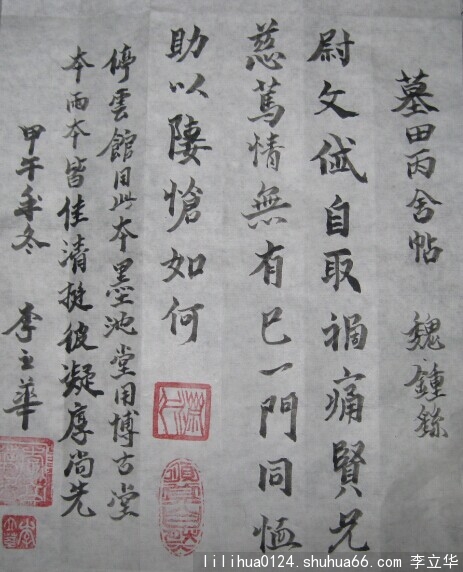 墓田丙舍帖 魏 鍾繇
尉文岱自取禍痛賢兄
慈篤情無有已一門同恤
助以悽愴如何
停雲館用此本墨池堂用博古堂
本兩本皆佳清挺彼凝厚尚先
甲午年冬 李立華
lilihua0124.shuhua66.com 李立华